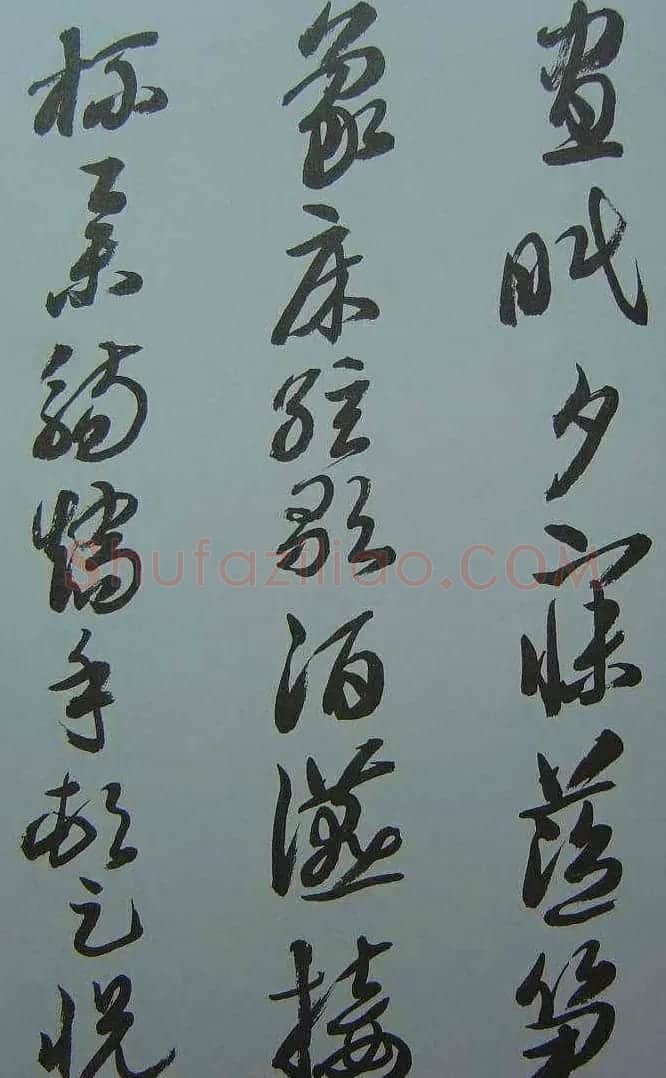 晝眠夕寐藍笋
象床絃歌酒讌接
杯舉觴矯手頓足悅
Shufaziliao.COM